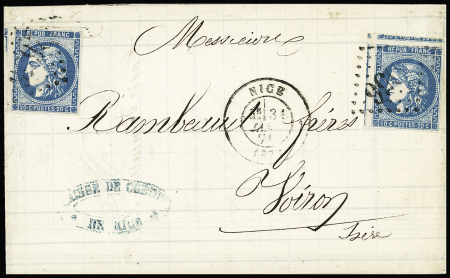 Messieurs
REPUB. FRANC
20 C. POSTES 20 C
REPUB. FRANC
20 C. POSTES 20 C
NICE
31
71
Rambeaud frères
Voiron
Isère
DE NICE